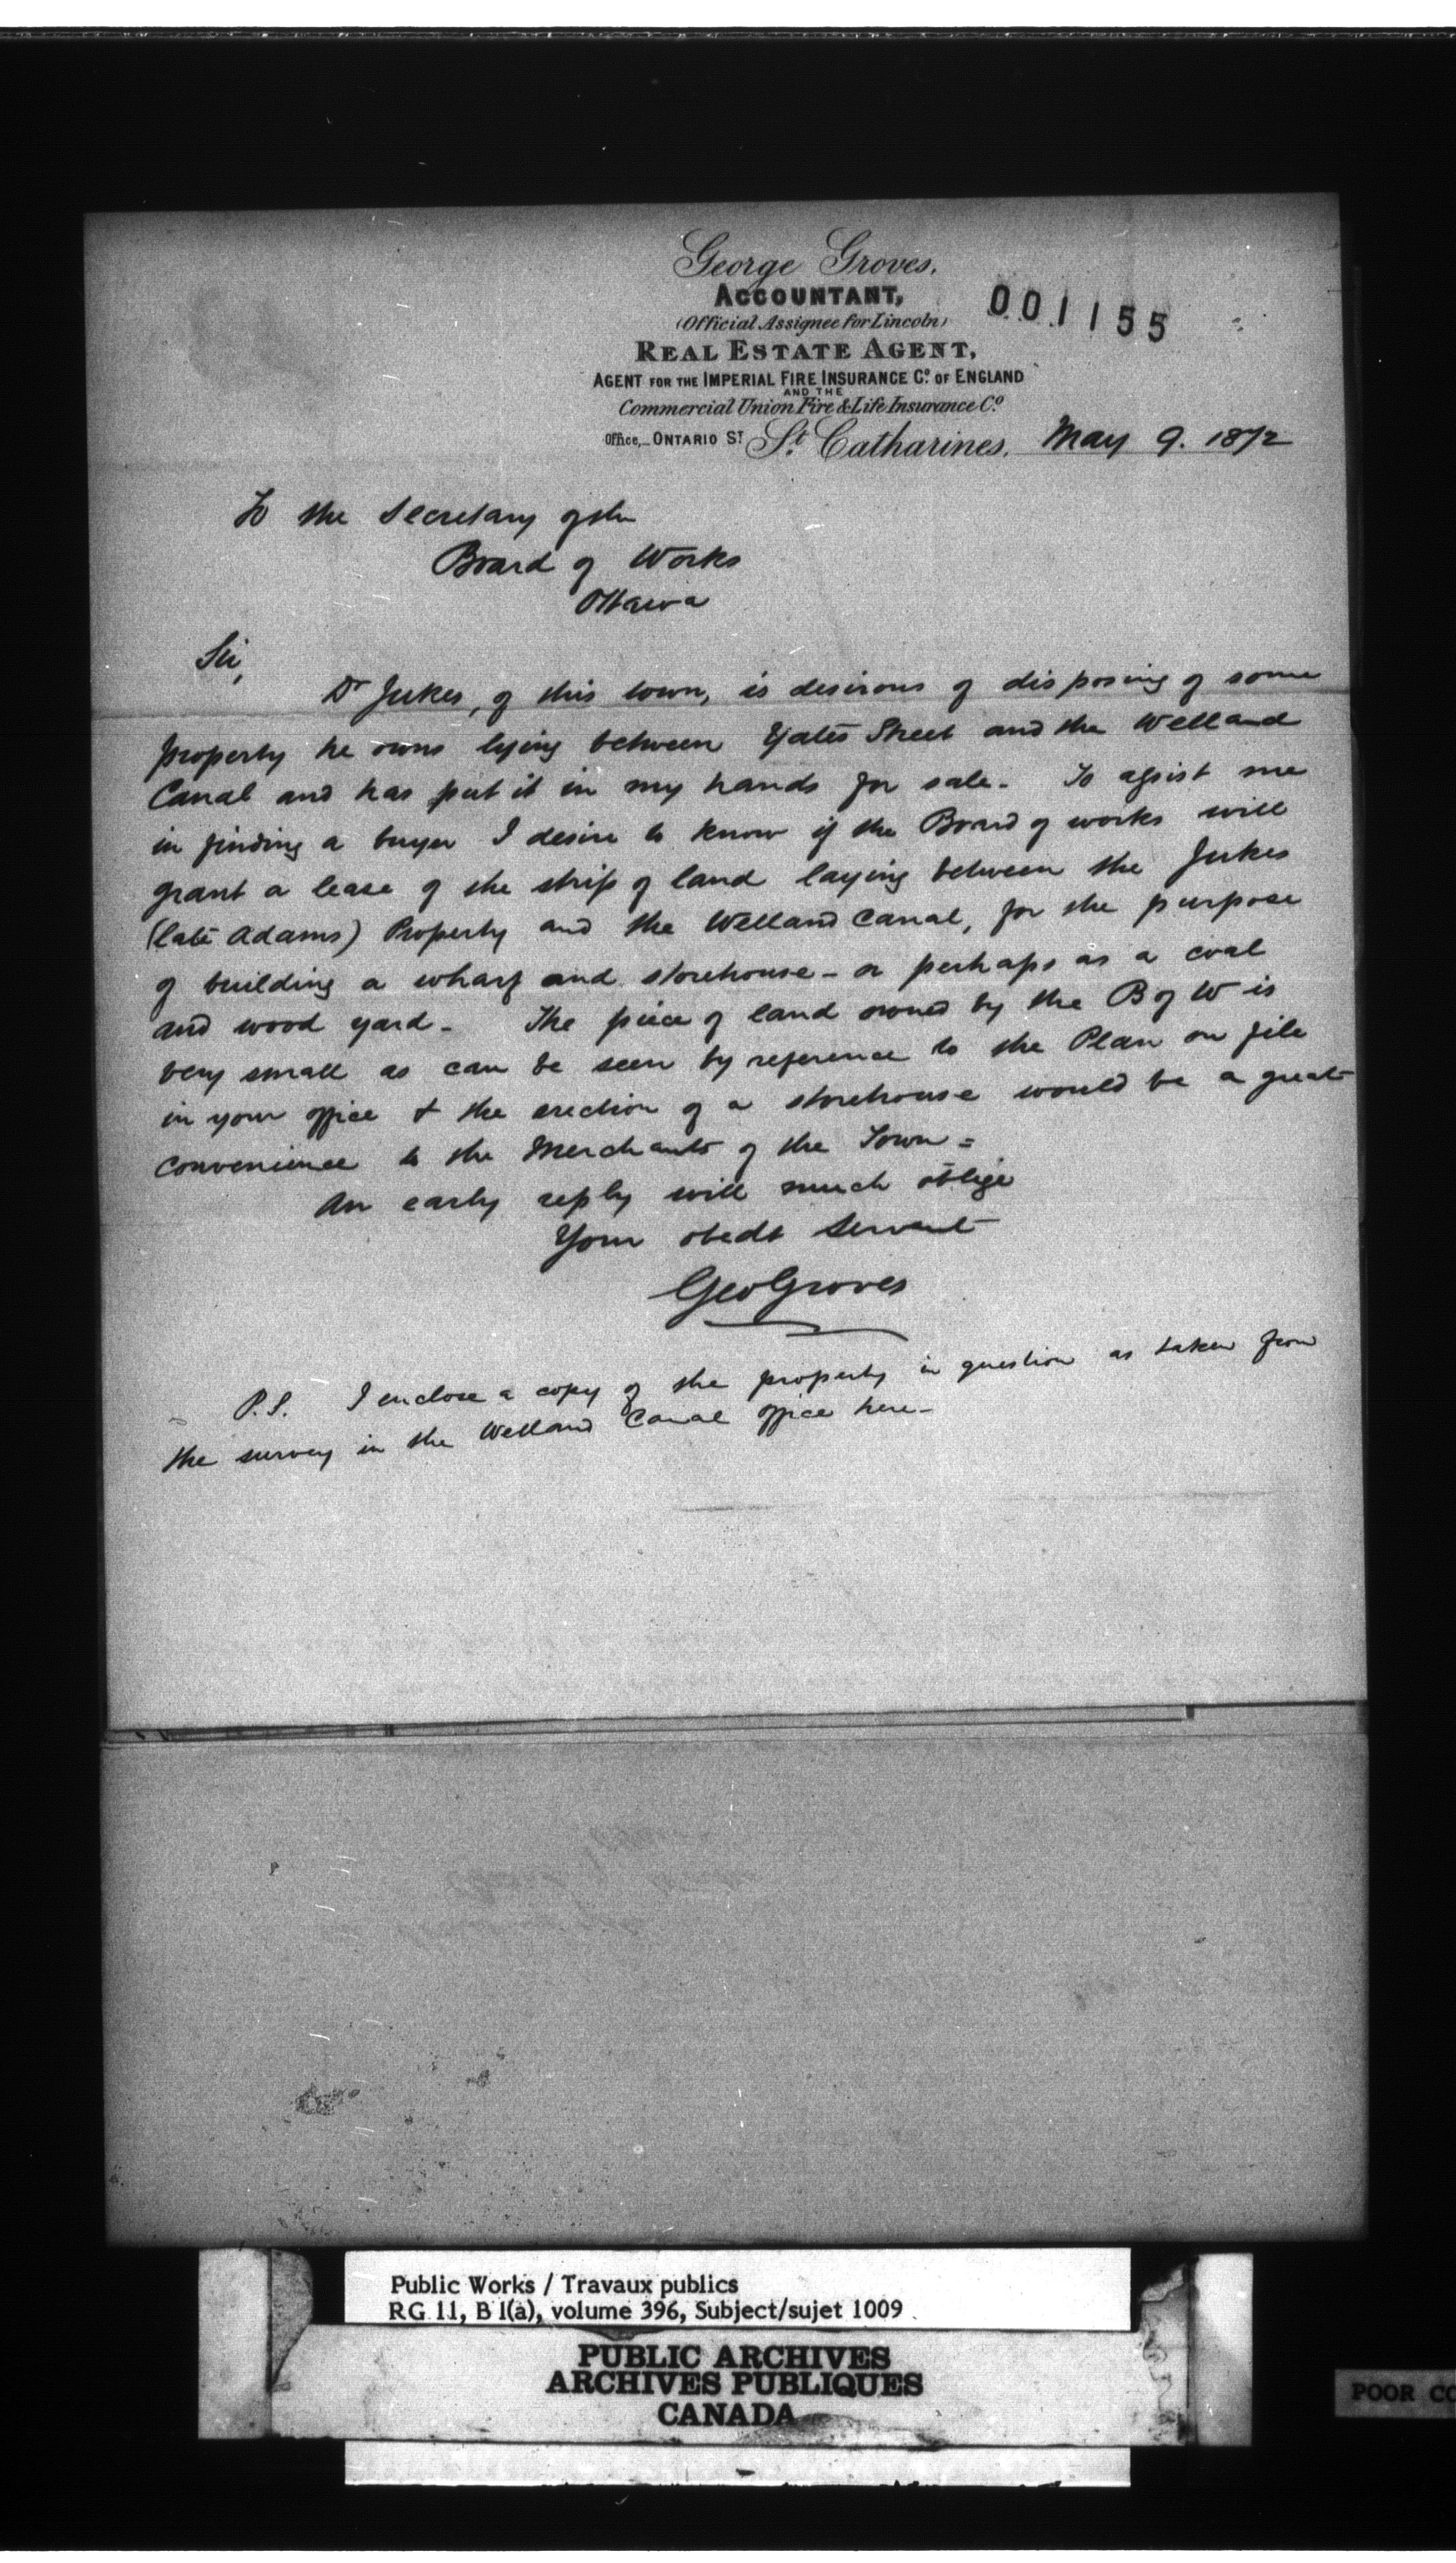 George Groves,
ACCOUNTANT,
(Official Assignee for Lincoln)
001155
REAL ESTATE AGENT,
AGENT FOR THE IMPERIAL FIRE INSURANCE Co. OF ENGLAND
AND THE
Commercial Union Fire & Life Insurance Co.
Office,_ ONTARIO ST St. Catharines, May 9. 1872
To the Secretary of the
Board of Works
Ottawa
Sir,
Dr Jukes, of this town, is desirous of disposing of some
property he owns lying between Yates Street and the Welland
Canal and has put it in my hands for sale - To assist me
in finding a buyer I desire to know if the Board of works will
grant a lease of the strip of land laying between the Jukes
(late Adams) Property and the Welland Canal, for the purpose
of building a wharf and storehouse - or perhaps as a coal
and wood yard - The piece of land owned by the B of W is
very small as can be seen by reference to the Plan on file
in your office & the erection of a storehouse would be a great
convenience to the Merchants of the Town =
An early reply will much oblige
Your obedt servant
Geo Groves
P.S. I enclose a copy of the property in question as taken from
the survey in the Welland Canal office here -
Public Works / Travaux publics
RG 11, B 1(a), volume 396, Subject/sujet 1009
PUBLIC ARCHIVES
ARCHIVES PUBLIQUES
CANADA
POOR CO